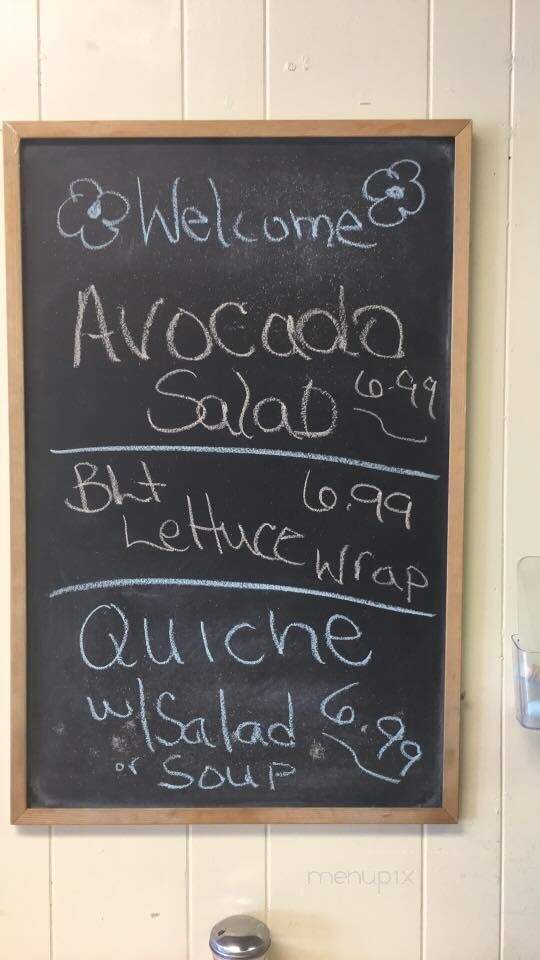 Welcome
Avocado
Salad 6.99
Blt 6.99
Lettuce wrap
Quiche
w/Salad 6.99
or Soup
menupix